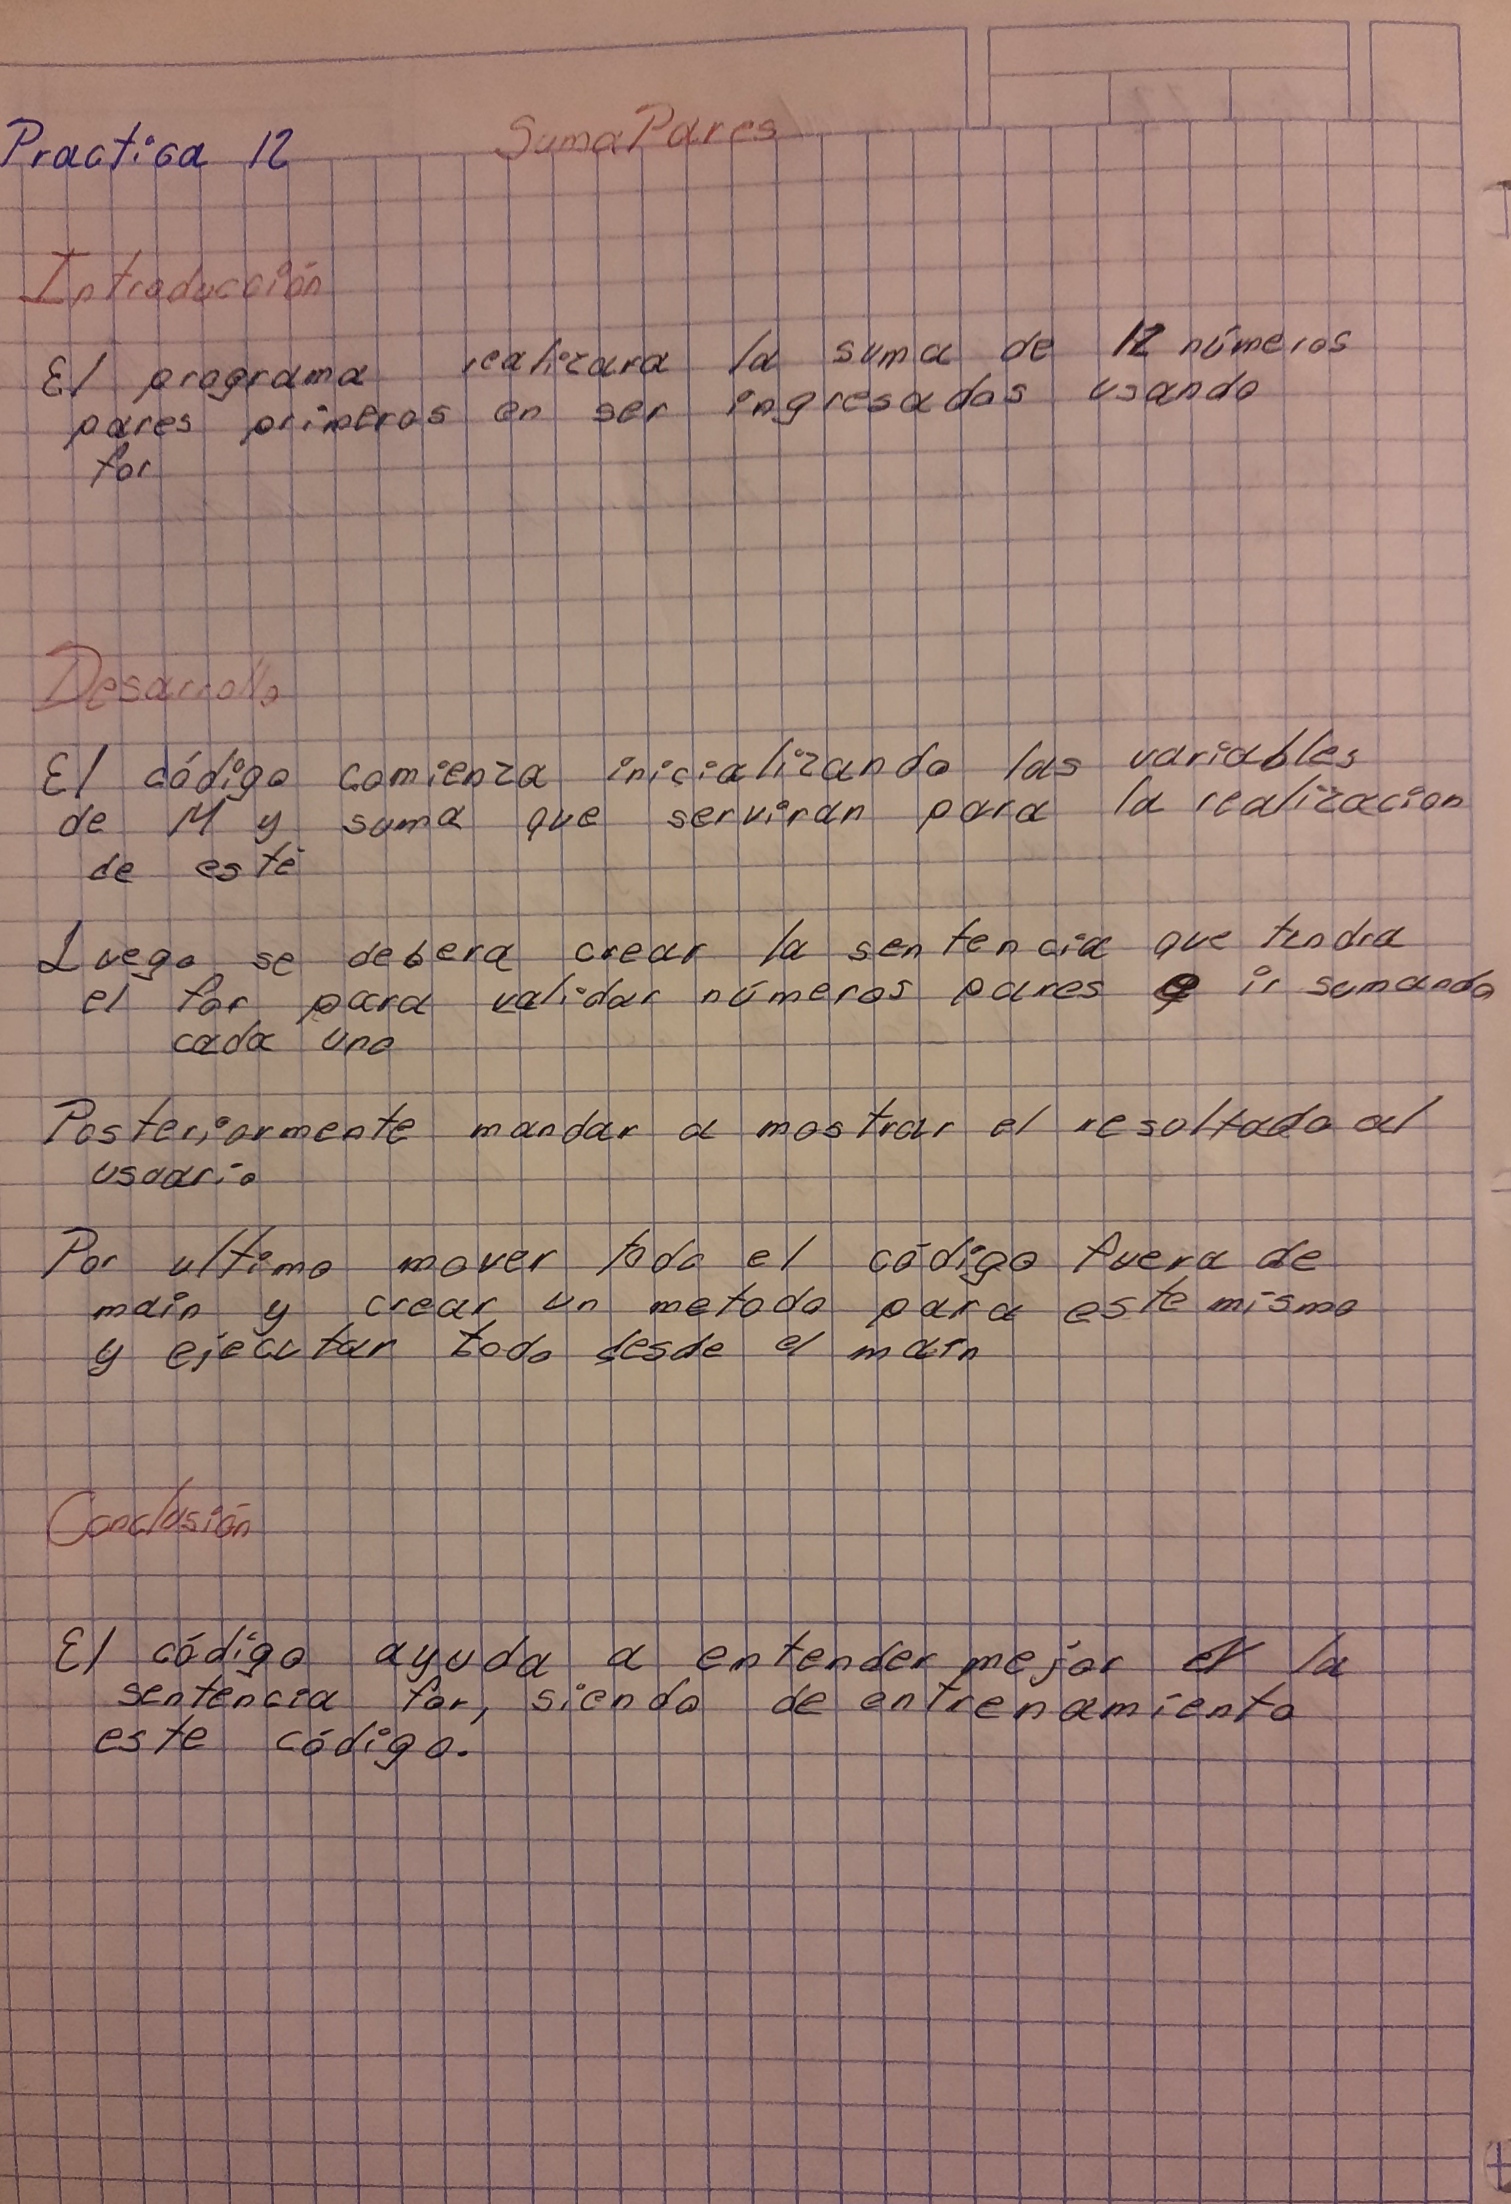 Practica 12 SumaPares
Introducción
El programa realizara la suma de 12 números
pares primeros en ser ingresados usando
for
Desarrollo
El código comienza inicializando las variables
de M y suma que serviran para la realizacion
de esté
Luego se debera crear la sentencia que tendra
el for para validar números pares e ir sumando
cada uno
Posteriormente mandar a mostrar el resultado al
usuario
Por ultimo mover todo el código fuera de
main y crear un metodo para este mismo
y ejecutar todo desde el main
Conclusión
El código ayuda a entender mejor la
sentencia for, siendo de entrenamiento
este código.